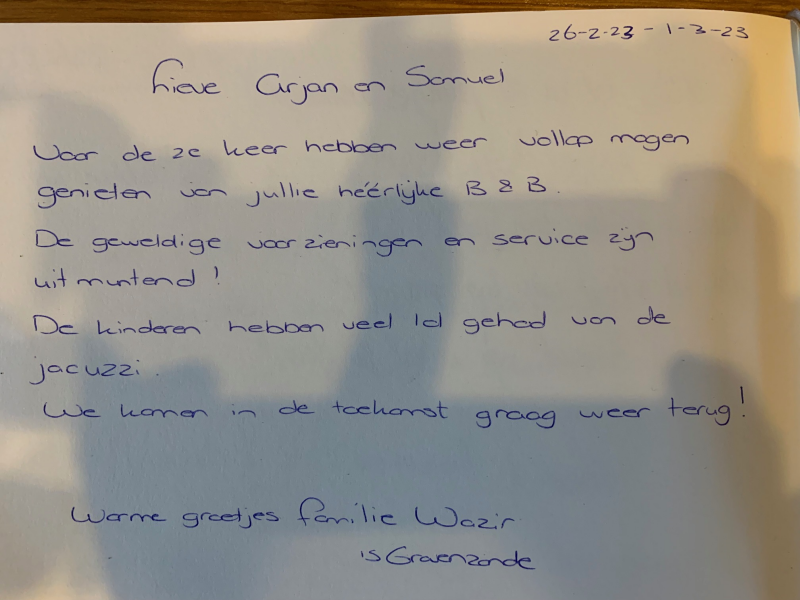 26-2-23 - 1-3-23
Lieve Arjan en Samuel
Voor de 2e keer hebben weer vollop mogen
genieten van jullie héérlijke B & B.
De geweldige voorzieningen en service zijn
uitmuntend!
De kinderen hebben veel lol gehad van de
jacuzzi.
We komen in de toekomst graag weer terug!
Warme groetjes familie Wazir
's Gravenzande